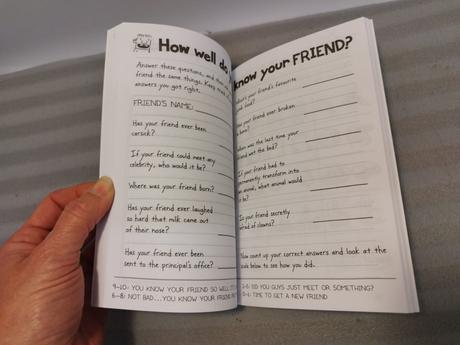 How well do
Answer these questions, and
friend the same things. Keep
answers you got right.
FRIEND'S NAME:
Has your friend ever been
carsick?
If your friend could meet any
celebrity, who would it be?
Where was your friend born?
Has your friend ever laughed
so hard that milk came out
of their nose?
Has your friend ever been
sent to the principal's office?
9-10: YOU KNOW YOUR FRIEND SO WELL
6-8: NOT BAD...YOU KNOW YOUR FRIEND
know your FRIEND?
What's your friend's favourite
food?
your friend ever broken
bone?
When was the last time your
friend wet the bed?
If your friend had to
permanently transform into
an animal, what animal would
it be?
Is your friend secretly
afraid of clowns?
Now count up your correct answers and look at the
scale below to see how you did.
DID YOU GUYS JUST MEET OR SOMETHING?
TIME TO GET A NEW FRIEND